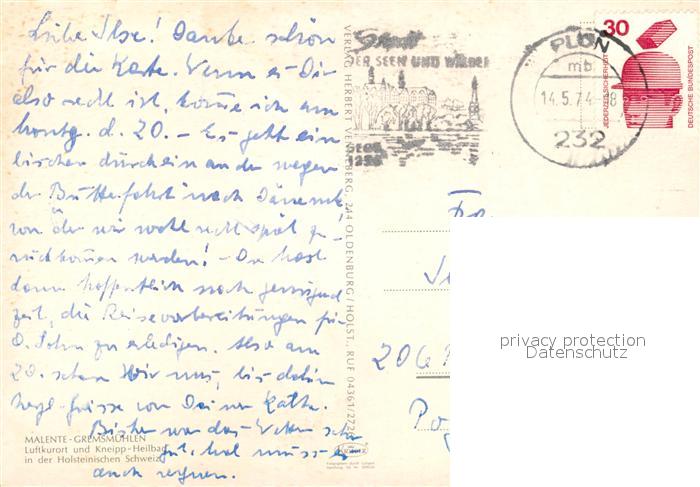 Liebe Ilse! Danke schön
für die Karte. Wenn es Dir
also recht ist, komme ich am
Montg. d. 20. – Es geht ein
bischen durcheinander wegen
der Butterfahrt nach Dänemk
von der wir wohl recht spät zu-
rückkommen werden! – Du hast
dann hoffentlich noch genügend
zeit, die Reisevorbereitungen für
D. Sohn zu erledigen. Also am
20. sehen Wir uns, bis dahin
hrzl. Grüsse von Deiner Käthe.
Bisher war das Wetter sehr
gut, mal muss es
auch regnen.
MALENTE-GREMSMÜHLEN
Luftkurort und Kneipp-Heilbad
in der Holsteinischen Schweiz
VERLAG HERBERT 244 OLDENBURG/HOLST., RUF 04361/272
Stadt
DER SEEN UND WÄLDER
1236
PLÖN
mb
14.5.74-18
232
30
JEDERZEIT SICHERHEIT
DEUTSCHE BUNDESPOST
206
privacy protection
Datenschutz